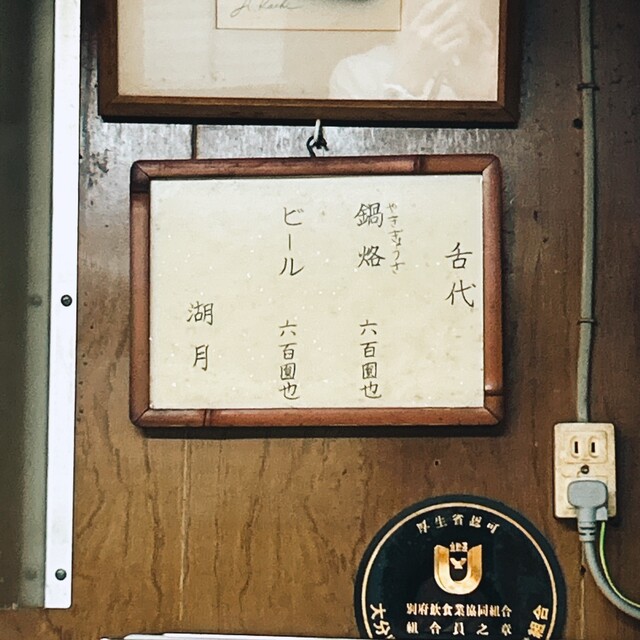 舌代
鍋烙 六百圓也
やきぎょうざ
ビール 六百圓也
湖月
厚生省認可
別府飲食業協同組合
組合員之章
大分